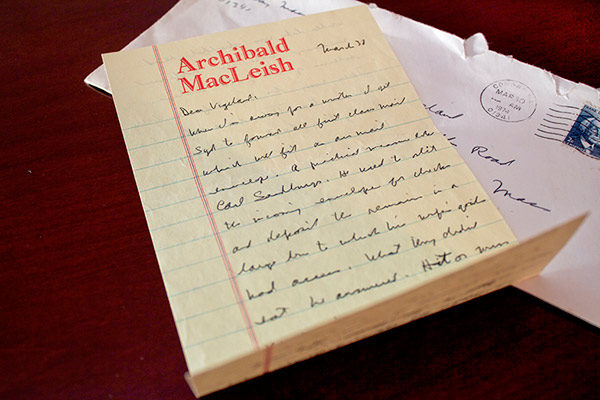 Archibald
MacLeish
March
Dear Vigeland:
When I'm away for a month I get
Syd to forward all first class mail
which will fit an air mail
envelope. A practical measure like
Carl Sandburg's. He used to slit
the incoming envelope for checks
and deposit the remains in a
large bin to which his wife's goats
had access. What they didn't
eat he answered. Hit or miss
MAR
AM
1974
Road
Mass